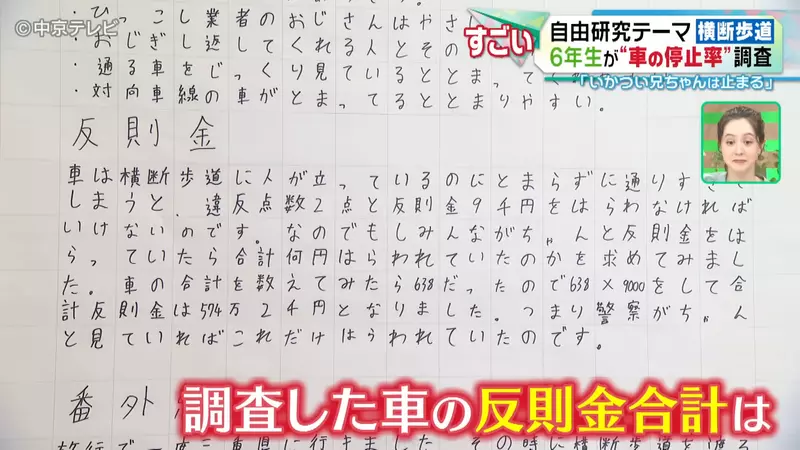 ©中京テレビ
すごい
自由研究テーマ 横断歩道
6年生が"車の停止率"調査
「いかつい兄ちゃんは止まる」
・ひっこし業者のおじさんはやさし
・おじぎし返してくれる人とその
・通る車をじっくり見ているととまってく
・対向車線の車がとまってるととまりやすい。
反則金
車は横断歩道に人が立っているのにとまらずに通りすぎ
しまうと、違反点数2点と反則金9千円をはらわなければ
いけないのです。なのでもしみんながちゃんと反則金をは
らっていたら合計何円はらわれていたのかを求めてみまし
た。車の合計を数えてみたら638だったので638×9000をして合
計反則金は574万2千円となりました。つまり警察がちゃん
と見ていればこれだけはらわれていたのです。
番外
旅行で一度三重県に行きました。その時に横断歩道を渡る
調査した車の反則金合計は